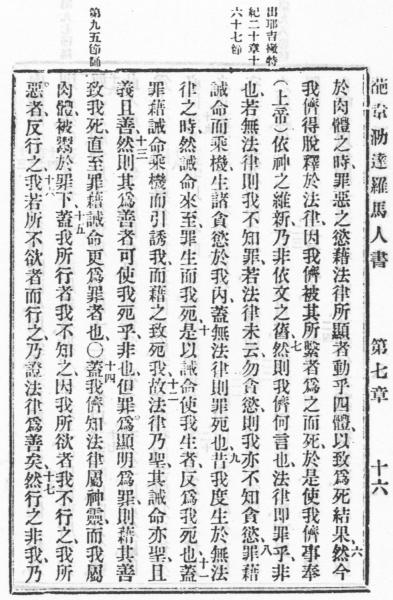 葩韋泐達羅馬人書 第七章 十六
紀二十章十
六十七節
第九五節
於肉體之時、罪惡之慾藉法律所顯者動乎四體、以致為死結果、六然今
我儕得脫釋於法律、因我儕被其所繫者為之而死、於是使我儕事奉
(上帝)依神之維新、乃非依文之舊、七然則我儕何言也、法律卽罪乎、非
也、若無法律、則我不知罪、若法律未云勿貪慾、則我亦不知貪慾、八罪藉
誡命而乘機生諸貪慾於我內、蓋無法律則罪死也、九昔我度生於無法
律之時、然誡命來至罪生、而我死、十是以誡命使我生者、反為我死也、十一蓋
罪藉誡命乘機而引誘我、而藉之致死我、十二故法律乃聖、其誡命亦聖、且
義且善、然則其為善者、可使我死乎、非也、但罪為顯明為罪則藉其善
致我死、直至罪藉誡命更為罪者也、〇十四蓋我儕知法律屬神靈、而我屬
肉體、被鬻於罪下、十五蓋我所行者、我不知之、因我所欲者、我不行之、我所
惡者、反行之、十六我若所不欲者而行之、乃證法律為善矣、十七然行之非我、乃